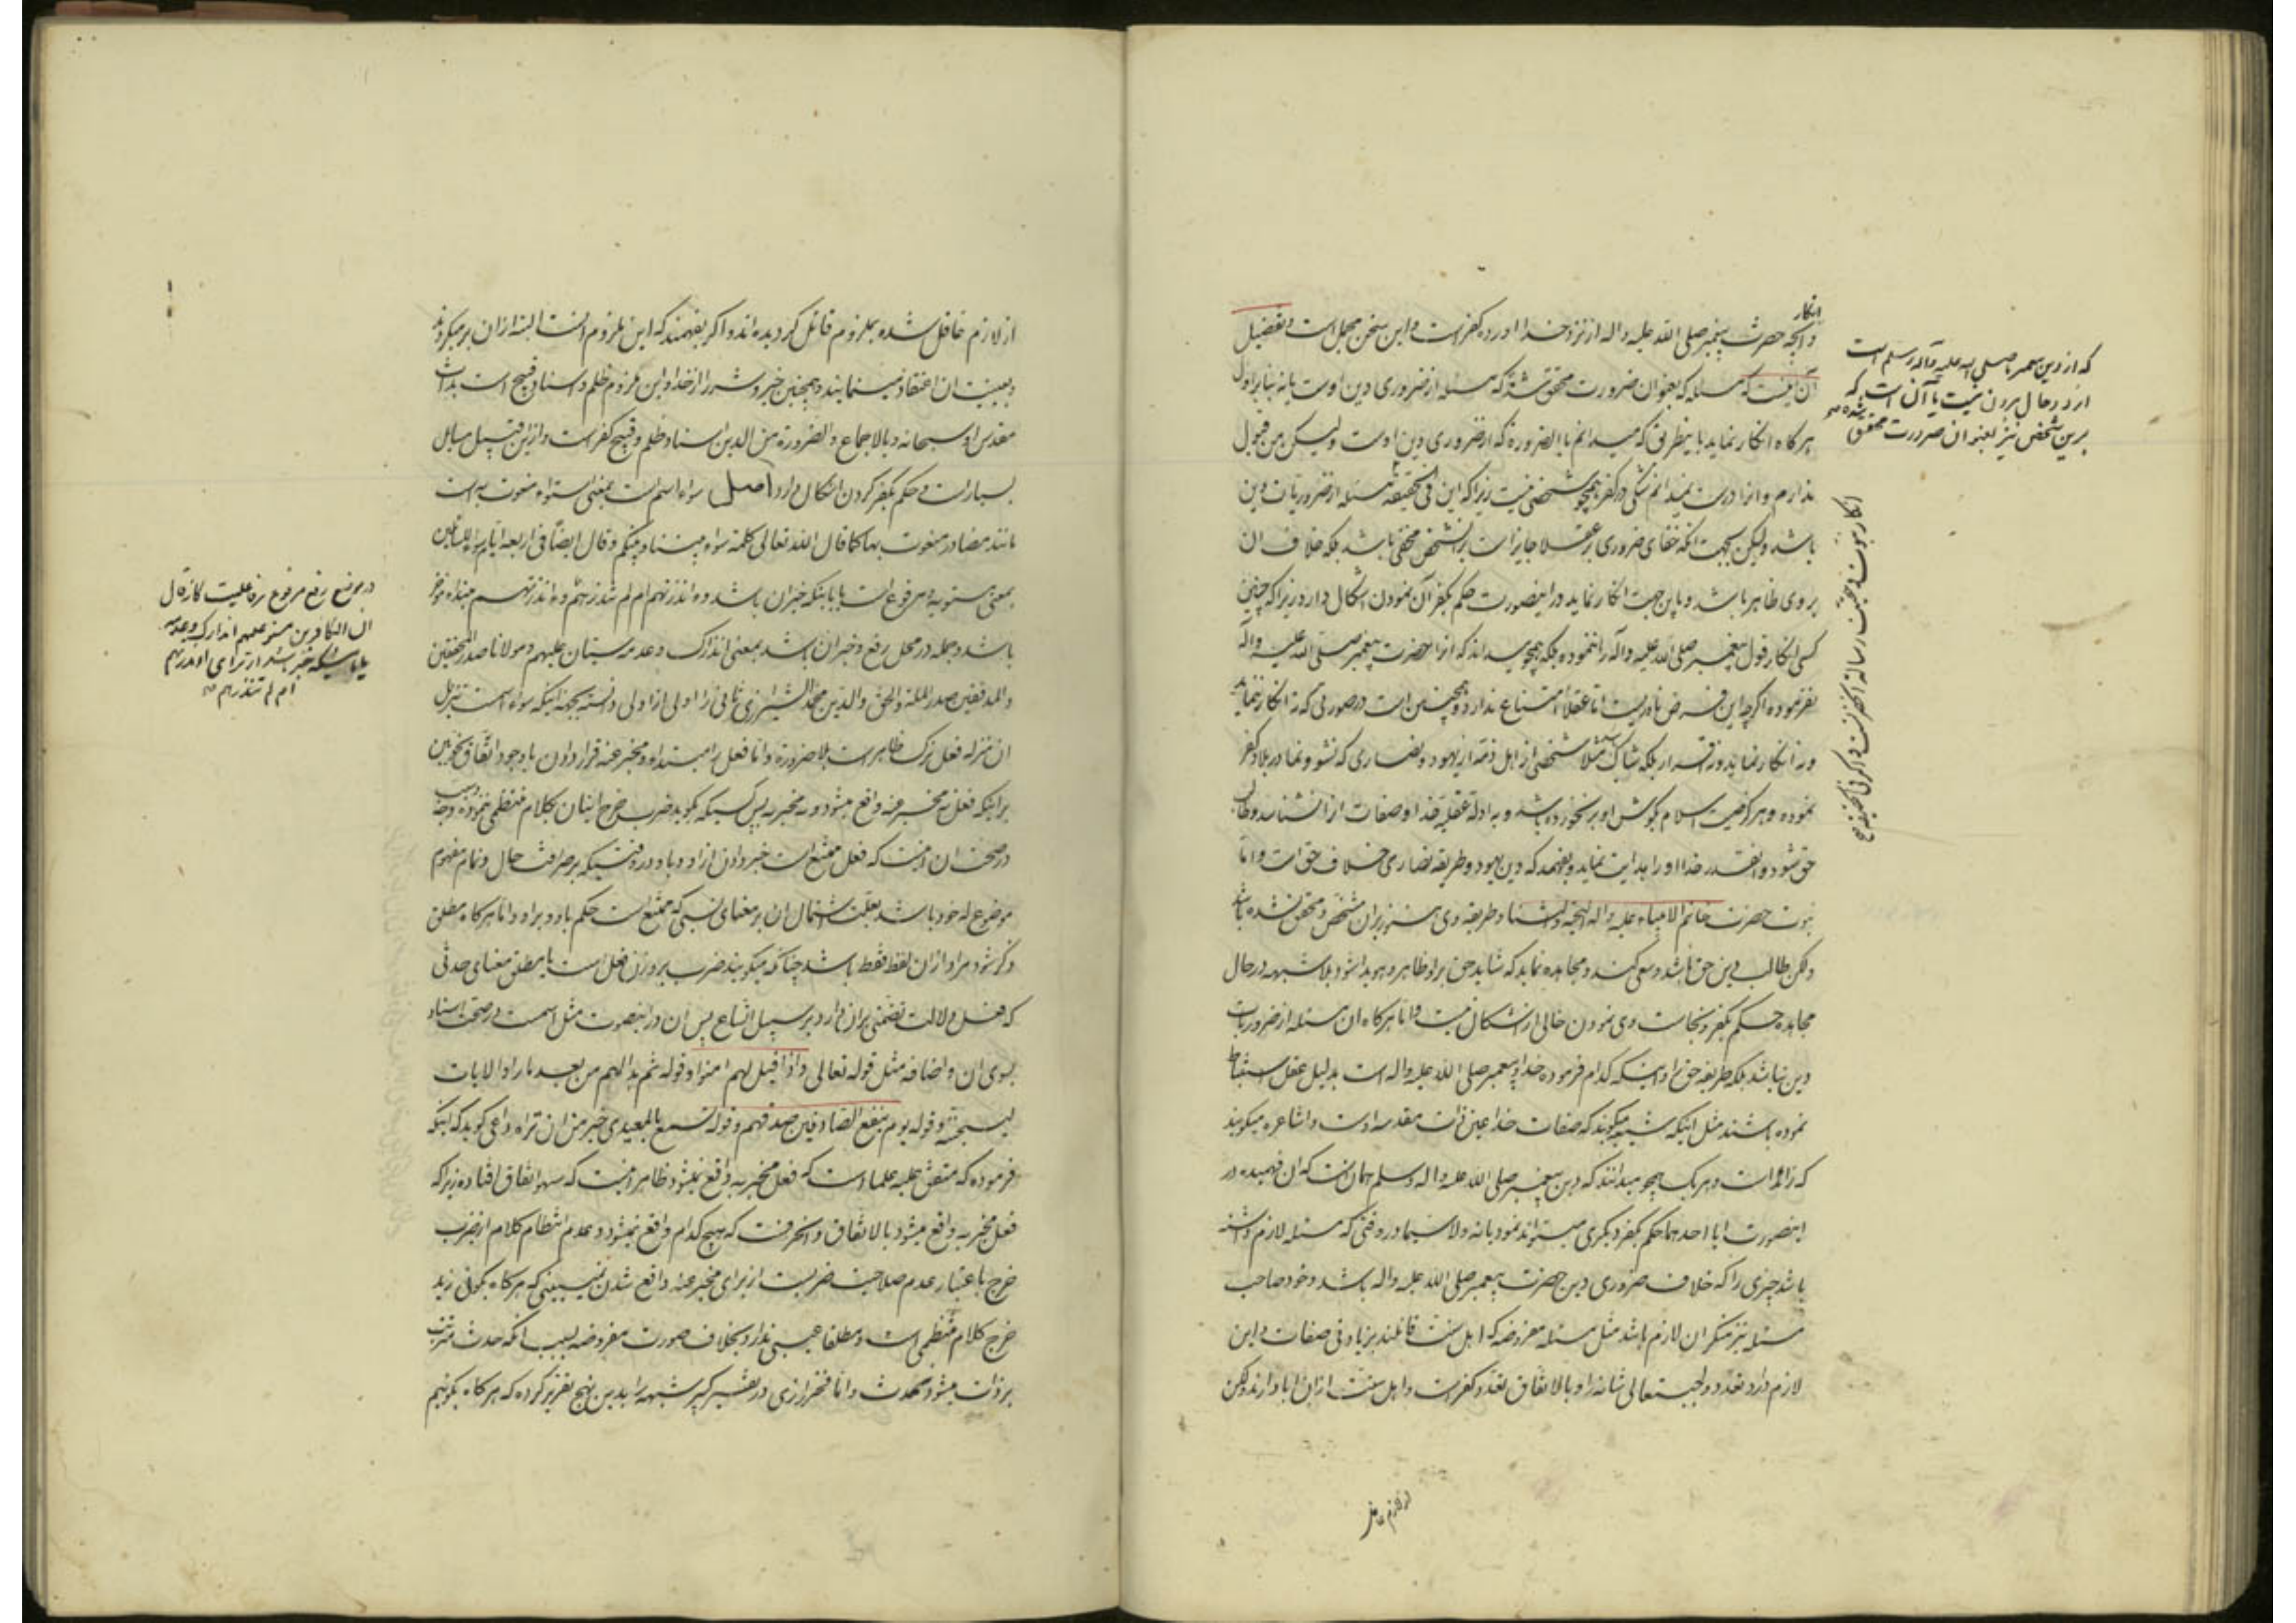 انکار
و آنچه حضرت پیغمبر صلی الله علیه و اله از نزد خدا اورده کفر است و این سخن مجمل است و تفصیل
آن اینست که مسئله که بعنوان ضرورت محقق شده که مسئله از ضروری دین اوست یا نه بنابر اول
هرکاه انکار نماید باینطریق که میدانم بالضرورة که از ضروری دین اوست ولیکن من قبول
ندارم و انرا درست نمیدانم شکی در کفر همچو شخصی نیست زیرا که این فی الحقیقه مسئله از ضروریات دین
باشد ولیکن بجهت انکه خفای ضروری بر عقلا جایز است بر انشخص مخفی باشد بلکه خلاف ان
بروی ظاهر باشد و باین جهت انکار نماید در اینصورت حکم بکفر آن نمودن اشکال دارد زیرا که چنین
کسی انکار قول پیغمبر صلی الله علیه و آله را ننموده بلکه همچو میداند که انرا حضرت پیغمبر صلی الله علیه و آله
نفرموده اگرچه این فرض نادریست اما عقلا امتناع ندارد و همچنین است در صورتی که نه انکار نماید
و نه انکار نماید و نه اقرار بلکه شاک مثلا شخصی از اهل ذمه از یهود و نصاری که نشو و نما در بلاد کفر
نموده و هرکز صیت اسلام بکوش او بر نخورده باشد و به ادله عقلیه خدا و صفات او را شناسد و طالب
حق شود و انقدر خدا او را هدایت نماید و بفهمد که دین یهود و طریقه نصاری خلاف حق است و اما
نبوت حضرت خاتم الانبیاء علیه و اله التحیة و الثناء و طریقه وی هنوز بر ان مشخص و محقق نشده باشد
ولکن طالب دین حق باشد و سعی کند و مجاهده نماید که شاید حق بر او ظاهر و هویدا شود بلا شبهه در حال
مجاهده حکم بکفر و نجاست وی نمودن خالی از اشکال نیست و اما هرکاه ان مسئله از ضروریات
دین نباشد بلکه طریقه حق را و اینکه کدام فرموده خدا و پیغمبر صلی الله علیه و اله است بدلیل عقل استنباط
نموده باشند مثل اینکه شیعه میکویند که صفات خدا عین ذات مقدسه اوست و اشاعره میکویند
که زائد است و هر یک همچو میدانند که دین پیغمبر صلی الله علیه و اله وسلم همان است که ان فهمیده در
اینصورت ایا احدهما حکم بکفر دیکری میتواند نمود یا نه ولا سیما در وقتی که مسئله لازم داشته
باشد چیزی را که خلاف ضروری دین حضرت پیغمبر صلی الله علیه و اله باشد و خود صاحب
مسئله نیز منکر ان لازم باشد مثل مسئله مفروضه که اهل سنت قائلند بزیادتی صفات و این
لازم دارد تعدد واجب تعالی شانه را و بالاتفاق تعدد کفر است و اهل سنت از ان ابا دارند ولکن
که از دین پیغمبر صلی الله علیه و آله وسلم است
از دو حال بیرون نیست یا آن است که
برین شخص نیز بعنوان ضرورت محقق شده
از لازم غافل
از لازم غافل شده بملزوم قائل کردیده اند و اکر بفهمند که این ملزوم انست البته از ان بر میکردند
مقدس او سبحانه و بالاجماع و الضرورة من الدین اسناد ظلم و قبیح کفر است و از این قبیل مسایل
بسیار است و حکم بکفر کردن اشکال دارد اصل سواء اسم است بمعنی استواء منعوت به است
مانند مصادر منعوت بها کما قال الله تعالی کلمة سواء بیننا و بینکم و قال ایضا فی اربعة ایام سواء للسائلین
بمعنی مستویة و مرفوع است یا باینکه خبر ان باشد و ءانذرتهم ام لم تنذرهم و ءانذرتهم مبتداء مؤخر
باشد و جمله در محل رفع و خبر ان باشد بمعنی انذارک و عدمه سیّان علیهم و مولانا صدر المحققین
والمدققین صدر الملة و الحق و الدین محمد الشیرازی ثانی را اولی از اولی دانسته بجهة اینکه سواء اسمست تنزیل
ان منزله فعل ترک ظاهر است بلا ضرورة و اما فعل را مبتداء و مخبر عنه قرار دادن با وجود اتفاق نحویین
بر اینکه فعل نه مخبر عنه واقع میشود و نه مخبر به پس کسیکه بکوید ضرب خرج اتیان بکلام منتظمی ننموده وجه
در صحت ان اینست که فعل ممتنع است خبر دادن از او و باو در وقتیکه بر صرافت حال و تمام مفهوم
موضوع له خود باشد بعلت اشتمال ان بر معنای نسبی که ممتنع است حکم باو و بر او و اما هرکاه مطلق
ذکر شود مراد از ان لفظ فقط باشد چنانکه میکویند ضرب بر وزن فعل است یا مطلق معنای حدثی
که فعل دلالت تضمنی بر ان دارد بر سبیل اتساع پس ان در اینصورت مثل اسمست در صحت اسناد
بسوی ان و اضافه مثل قوله تعالی و اذا قیل لهم امنوا و قوله ثم بدا لهم من بعد ما راوا الایات
لیسجننه و قوله یوم ینفع الصادقین صدقهم و قوله تسمع بالمعیدی خیر من ان تراه داعی کوید که اینکه
فرموده که متفق علیه علما است که فعل مخبر به واقع نمیشود ظاهر اینست که سهو اتفاق افتاده زیرا که
فعل مخبر به واقع میشود بالاتفاق و انحرفست که هیچ کدام واقع نمیشود و عدم انتظام کلام از ضرب
خرج باعتبار عدم صلاحیت ضربست از برای مخبر عنه واقع شدن نمیبینی که هرکاه بکوئی زید
خرج کلام منتظمی است و مطلقا عیبی ندارد بخلاف صورت مفروضه بسبب انکه حدث مترتب
بر ذات میشود نه بحدث و اما فخر رازی در تفسیر کبیر شبهه را بدین نهج تقریر کرده که هرکاه بکوئیم
در موضع رفع مرفوع بفاعلیت کانه قال
ان الکافرین مستو علیهم انذارک و عدمه
ام لم تنذرهم